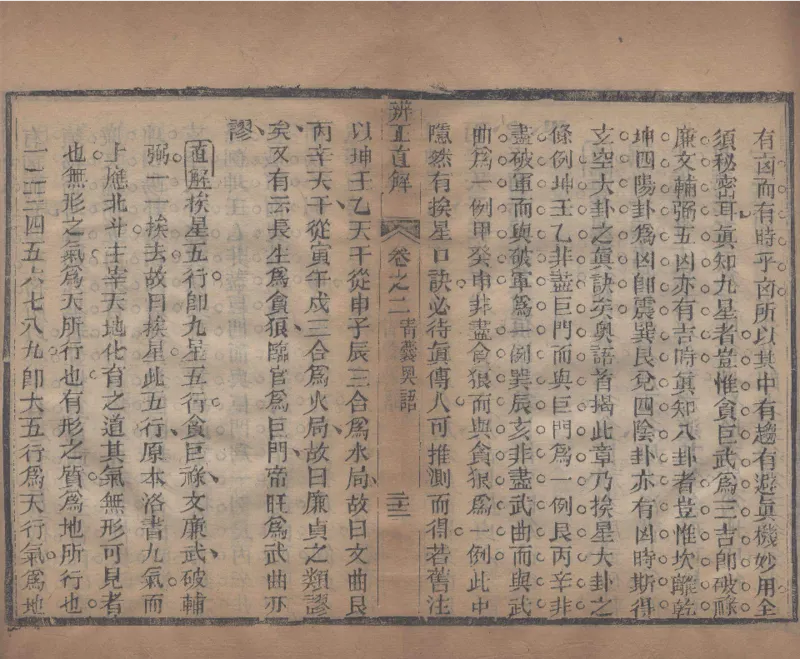 有凶而有時乎凶所以其中有趨有避眞機妙用全
須秘密耳眞知九星者豈惟貪巨武爲三吉卽破祿
廉文輔弼五凶亦有吉時眞知八卦者豈惟坎離乾
坤四陽卦爲凶卽震巽艮兌四陰卦亦有凶時斯得
玄空大卦之眞訣矣奥語首揭此章乃挨星大卦之
條例坤壬乙非盡巨門而與巨門爲一例艮丙辛非
盡破軍而與破軍爲一例巽辰亥非盡武曲而與武
曲爲一例甲癸申非盡貪狼而與貪狼爲一例此中
隱然有挨星口訣必待眞傳人可推測而得若舊注
辨正直解
卷之二
青囊奥語
二十三
以坤壬乙天干從申子辰三合爲水局故曰文曲艮
丙辛天干從寅午戌三合爲火局故曰廉貞之類謬
矣又有云長生爲貪狼臨官爲巨門帝旺爲武曲亦
謬
直解挨星五行卽九星五行貪巨祿文廉武破輔
弼一一挨去故曰挨星此五行原本洛書九氣而
上應北斗主宰天地化育之道其氣無形可見者
也無形之氣爲天所行也有形之質爲地所行也
一二三四五六七八九卽大五行爲天行氣爲地